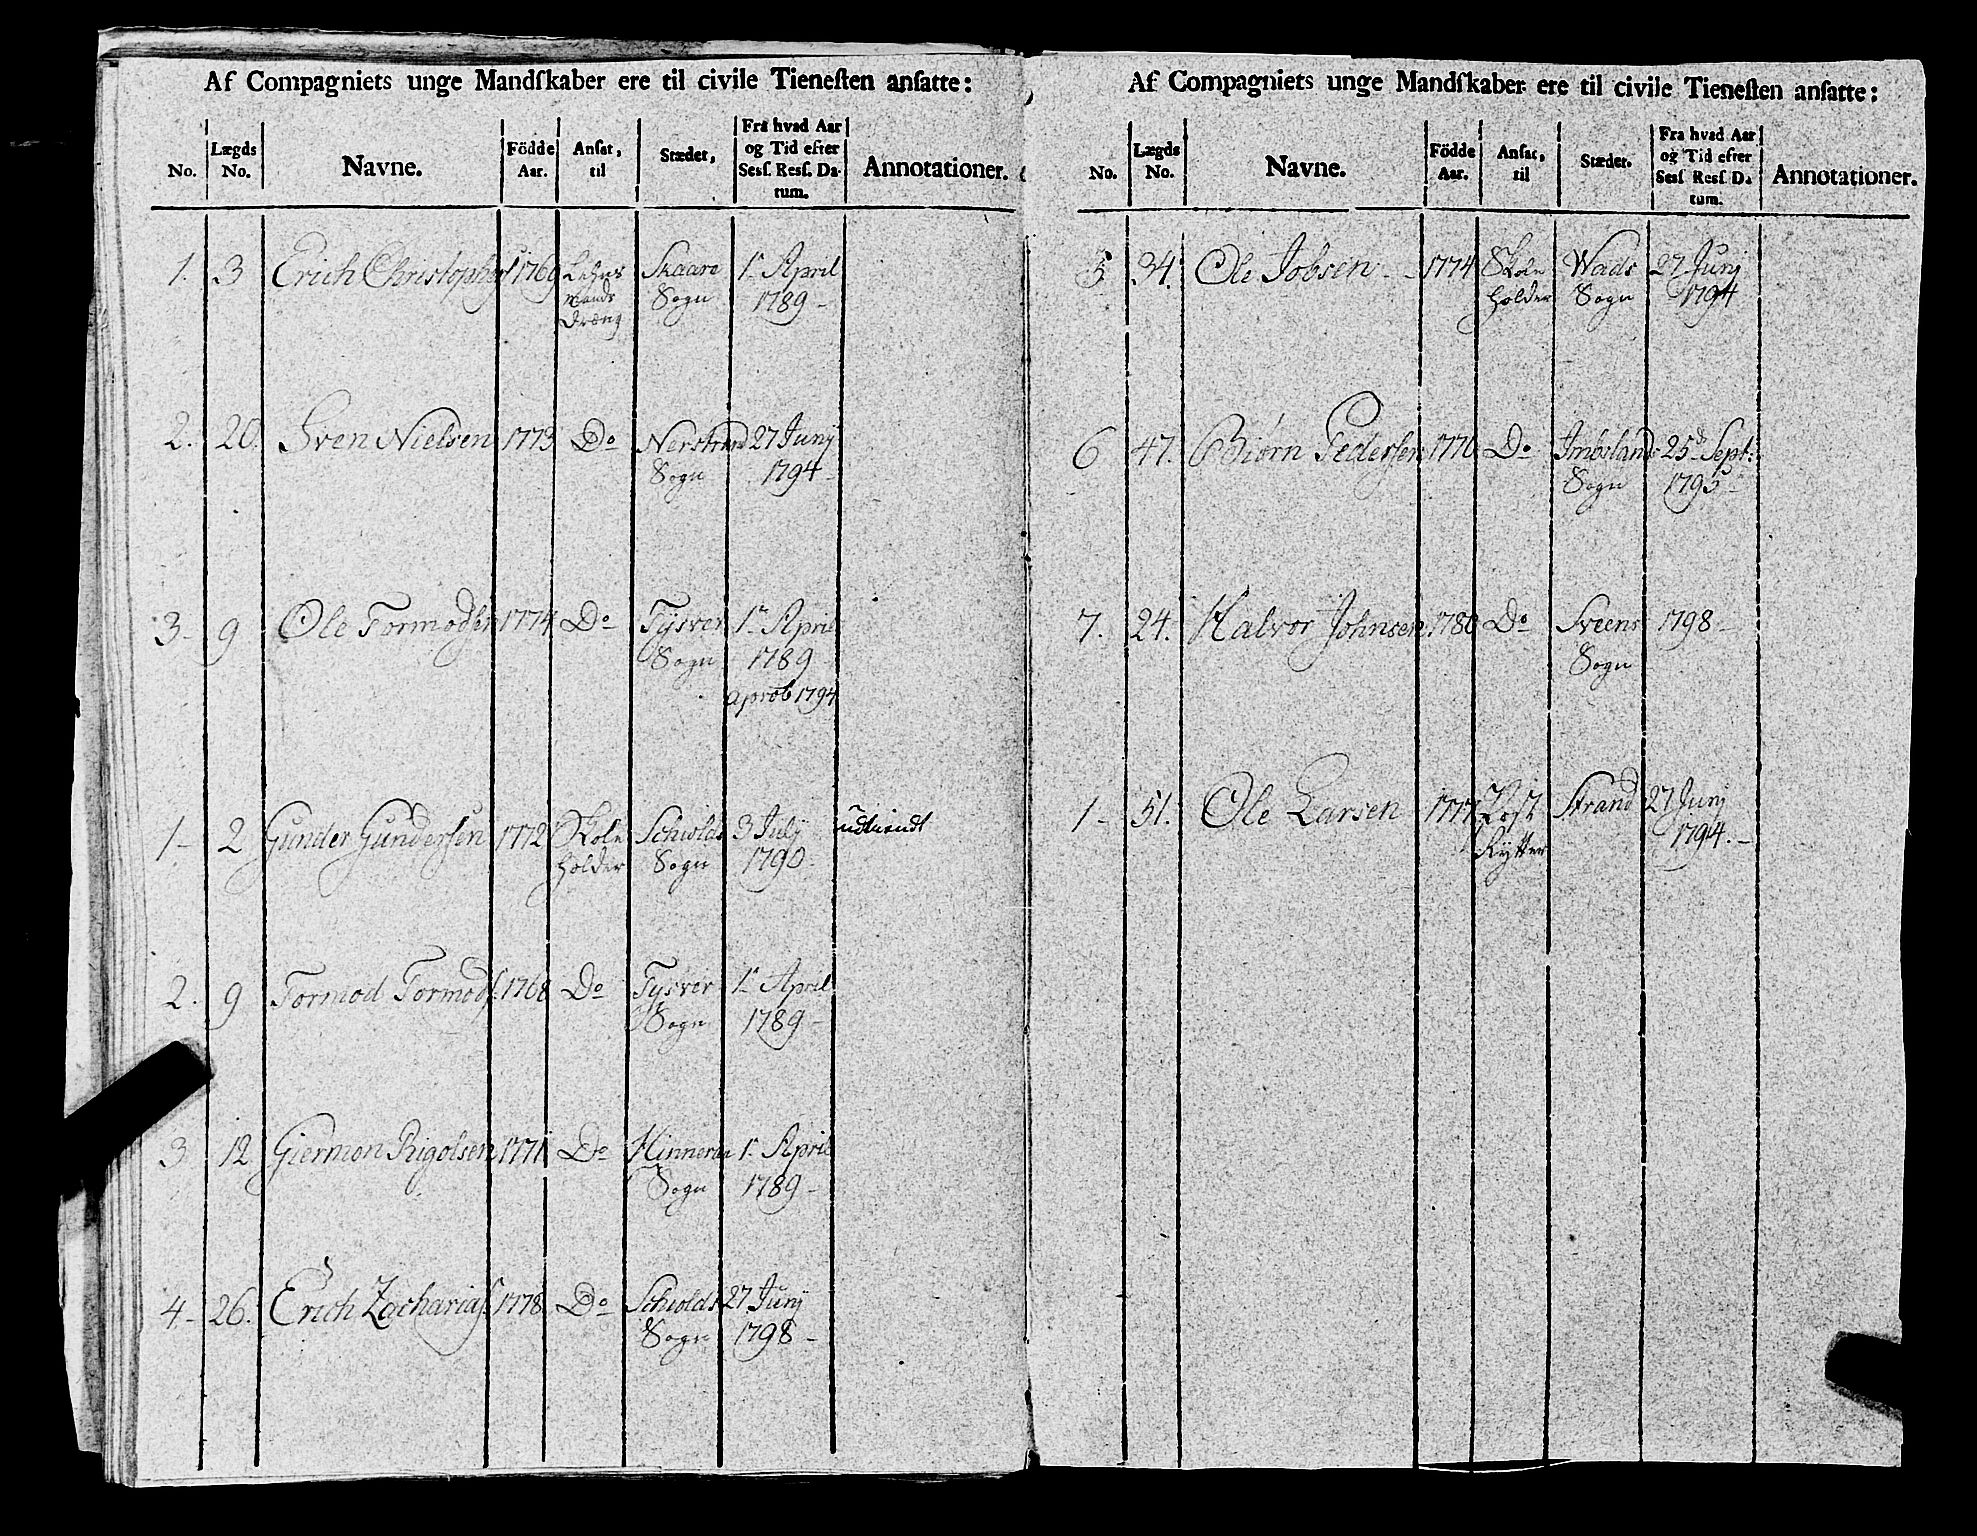 Af Compagniets unge Mandſkaber ere til civile Tieneſten anſatte:
No. Lægds No. Navne. Födde Aar. Anſat, til Stædet, Fra hvad Aar og Tid efter Sesſ. Resſ. Datum. Annotationer.
1. 3 Erich Christophers 1769 Lehns Skaare 1r April
mands Sogn 1789 -
Dræng
2. 20. Sven Nielsen 1773 Do Nerstrand 27 Junj
Sogn 1794 -
3- 9 Ole Tormodsen 1774 Do Tysver 1r April
Sogn 1789
aprob 1794
1- 2 Gunder Gundersen 1772 Skole Schiolds 3 July
holder Sogn 1790.
2. 9 Tormod Tormods. 1768 Do Tysver 1r April
Sogn 1789 -
3 12 Giermon Rigolsen 1771 Do Hinneraa 1r April
Sogn 1789 -
4- 26. Erich Zacharias. 1778 Do Schiolds 27 Junj
Sogn 1798 -
Af Compagniets unge Mandſkaber ere til civile Tieneſten anſatte:
No. Lægds No. Navne. Födde Aar. Anſat, til Stædet. Fra hvad Aar og Tid efter Sesſ Resſ Da tum. Annotationer.
5 34. Ole Jobsen - 1774 Skole Wads 27 Junj
holder Sogn 1794
6 47. Biørn Pedersen 1770 Do Imbsland 25d Sept:
Sogn 1795 -
7. 24. Halvor Johnsen 1780 Do Sveens 1798 -
Sogn
1- 51. Ole Larsen 1777 Post Strand 27 Junj
Rytter 1794. -